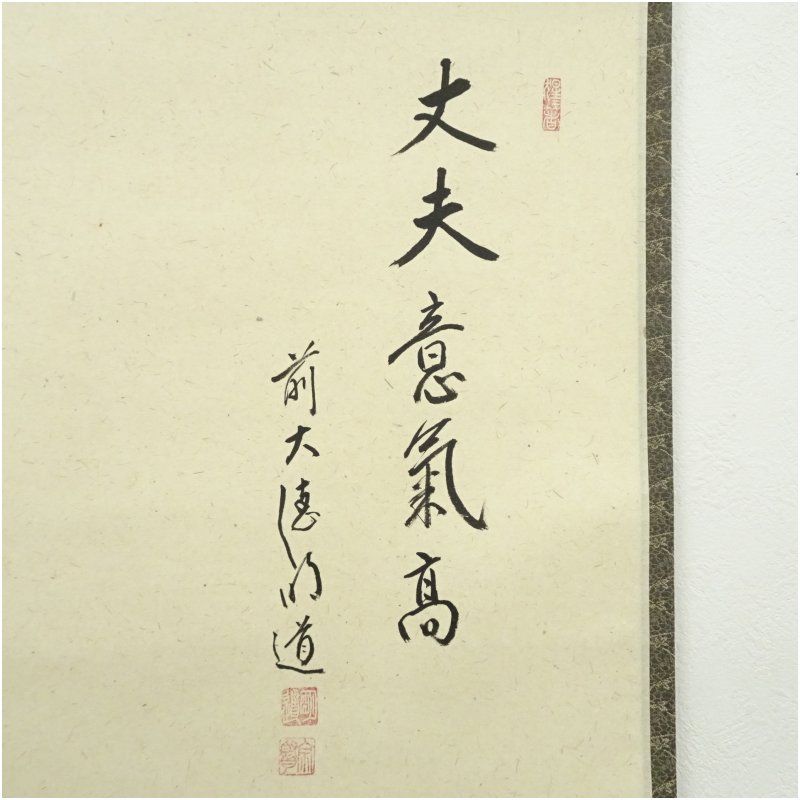 丈夫意氣高
前大德明道